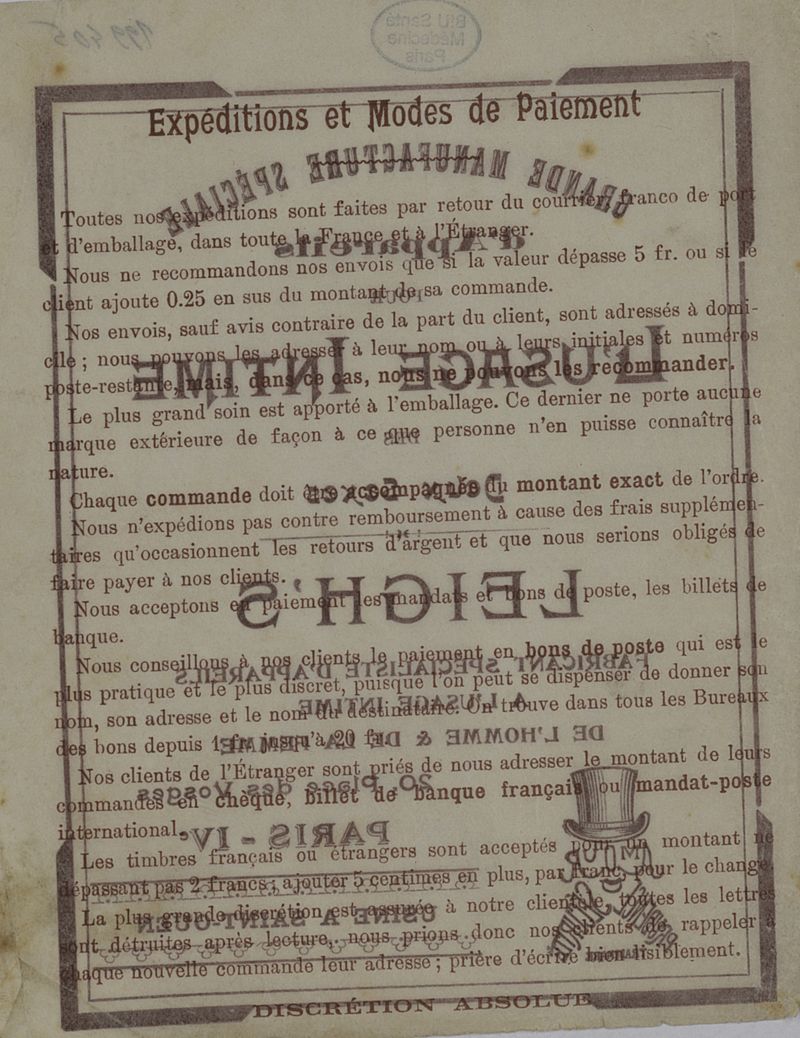 Expéditions et Modes de Paiement
Toutes nos expéditions sont faites par retour du courrier, franco de port
et d'emballage, dans toute la France et à l'Étranger.
Nous ne recommandons nos envois que si la valeur dépasse 5 fr. ou si le
client ajoute 0.25 en sus du montant de sa commande.
Nos envois, sauf avis contraire de la part du client, sont adressés à domi-
cile ; nous pouvons les adresser à leur nom ou à leurs initiales et numéros
poste-restante, mais, dans ce cas, nous ne pouvons les recommander.
Le plus grand soin est apporté à l'emballage. Ce dernier ne porte aucune
marque extérieure de façon à ce que personne n'en puisse connaître la
nature.
Chaque commande doit être accompagnée du montant exact de l'ordre.
Nous n'expédions pas contre remboursement à cause des frais supplémen-
taires qu'occasionnent les retours d'argent et que nous serions obligés de
faire payer à nos clients.
Nous acceptons en paiement les mandats et bons de poste, les billets de
banque.
Nous conseillons à nos clients le paiement en bons de poste qui est le
plus pratique et le plus discret, puisque l'on peut se dispenser de donner son
nom, son adresse et le nom du destinataire. On trouve dans tous les Bureaux
des bons depuis 1 fr. jusqu'à 20 fr.
Nos clients de l'Étranger sont priés de nous adresser le montant de leurs
commandes en chèque, billet de banque français ou mandat-poste
international.
Les timbres français ou étrangers sont acceptés pour un montant ne
dépassant pas 2 francs ; ajouter 5 centimes en plus, par franc, pour le change.
La plus grande discrétion est assurée à notre clientèle, toutes les lettres
sont détruites après lecture, nous prions donc nos clients de rappeler à
chaque nouvelle commande leur adresse ; prière d'écrire bien lisiblement.
DISCRÉTION ABSOLUE
GRANDE MANUFACTURE SPÉCIALE
d'Appareils
POUR
L'USAGE INTIME
des
Deux Sexes
LEIGH'S
FABRICANT SPÉCIALISTE D'APPAREILS
A L'USAGE INTIME
DE L'HOMME & DE LA FEMME
20, Place des Vosges
PARIS - IV
USINE A SAINT-OUEN
BIU Santé
Médecine
Paris
199405